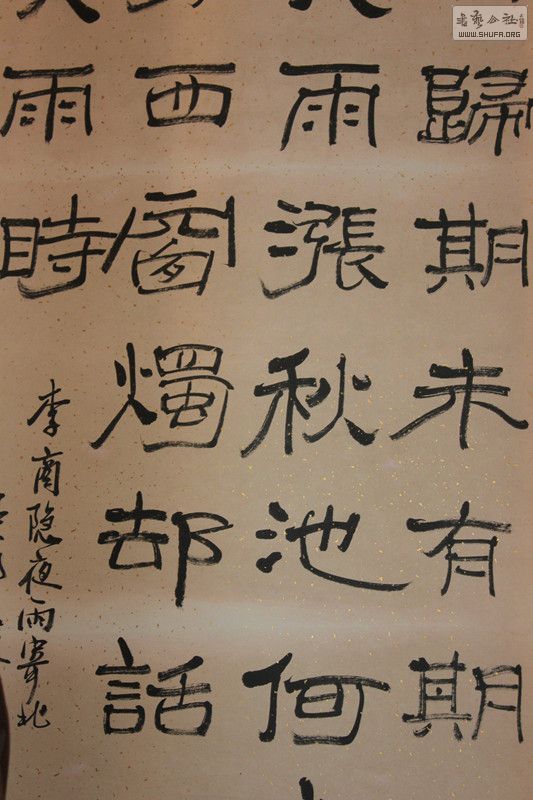 歸期未有期
雨漲秋池何
西窗燭却話
雨時
李商隐夜雨寄北
WWW.SHUFA.ORG